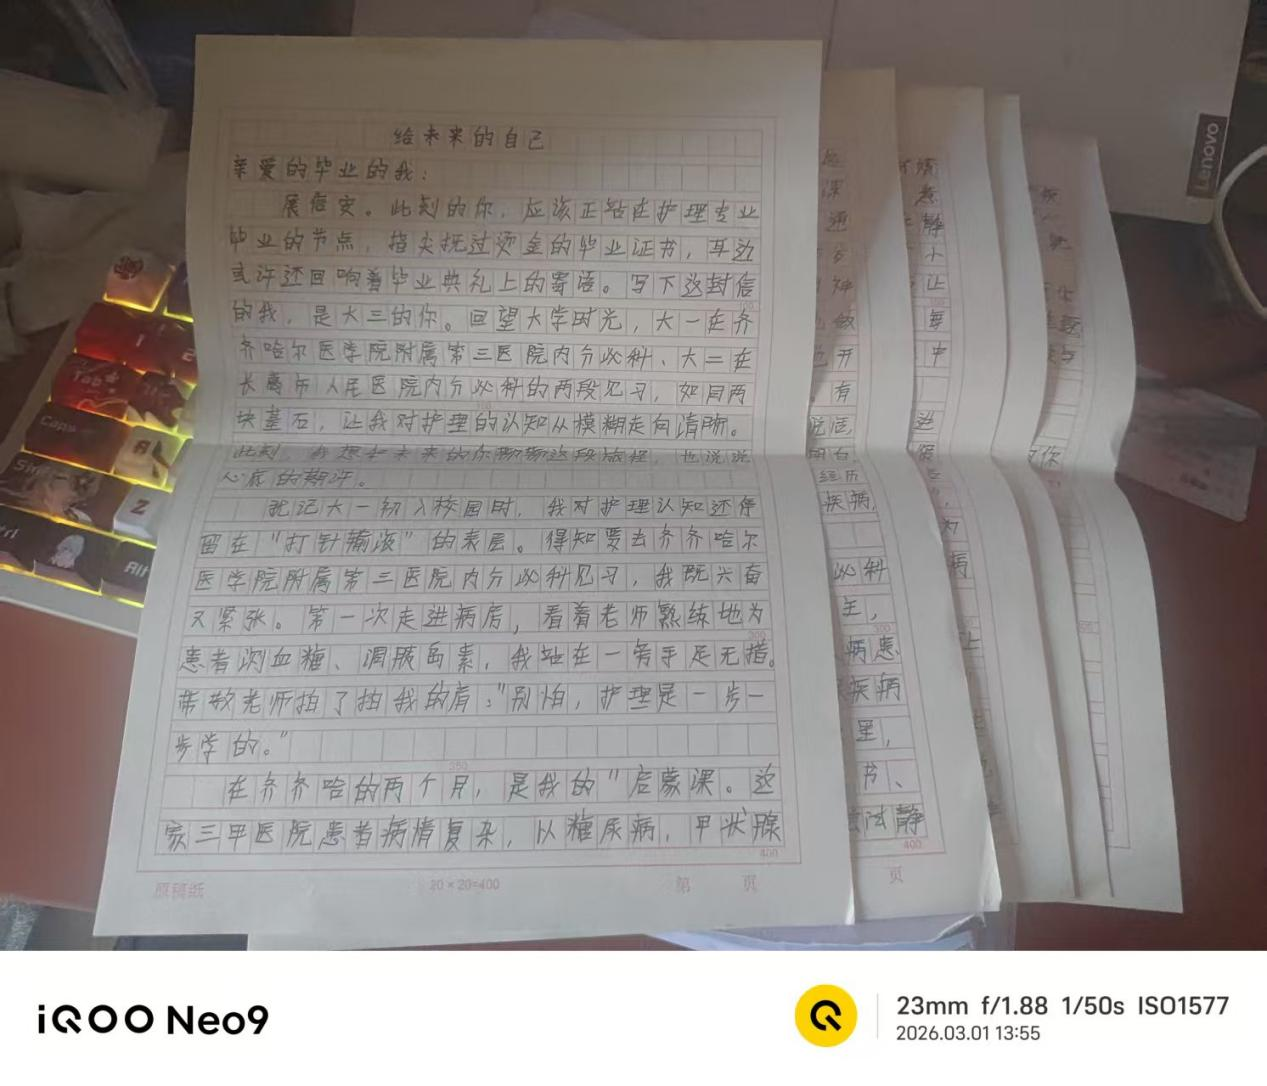 给未来的自己
亲爱的毕业的我：
展信安。此刻的你，应该正站在护理专业
毕业的节点，指尖抚过烫金的毕业证书，耳边
或许还回响着毕业典礼上的寄语。写下这封信
的我，是大三的你。回望大学时光，大一在齐
齐哈尔医学院附属第三医院内分必科、大二在
长离市人民医院内分必科的两段见习，如同两
块基石，让我对护理的认知从模糊走向清晰。
此刻，我想和未来的你聊聊这段旅程，也说说
心底的期许。
犹记大一初入校园时，我对护理认知还停
留在“打针输液”的表层。得知要去齐齐哈尔
医学院附属第三医院内分必科见习，我既兴奋
又紧张。第一次走进病房，看着老师熟练地为
患者测血糖、调胰岛素，我站在一旁手足无措。
带教老师拍了拍我的肩：“别怕，护理是一步一
步学的。”
在齐齐哈的两个月，是我的“启蒙课。这
家三甲医院患者病情复杂，以糖尿病，甲状腺
原稿纸
20×20=400
第 页
静
小
让
每
中
开
有
经历
疾病，
必科
主，
病患
疾病
里，
书、
静
页
Lenovo
Tab
Caps
A
Z
Alt
iQOO Neo9
23mm f/1.88 1/50s ISO1577
2026.03.01 13:55